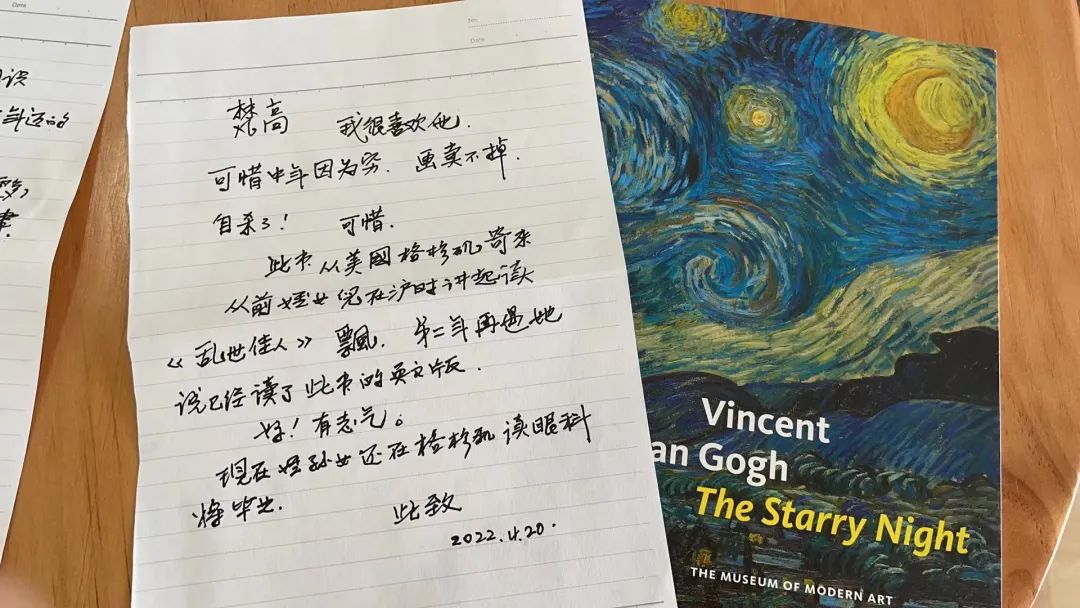 Date
识
No.
Date
梵高 我很喜欢他.
可惜中年因为穷. 画卖不掉.
自杀了! 可惜.
此书从美國格杉矶寄来
从前姪女兒在沪时讲起读
《乱世佳人》飄. 第二年再遇她
说已经读了此书的英文版.
好! 有志气。
现在姪孙女还在格杉矶读眼科
将毕业. 此致
2022.4.20.
Vincent
an Gogh
The Starry Night
THE MUSEUM OF MODERN ART